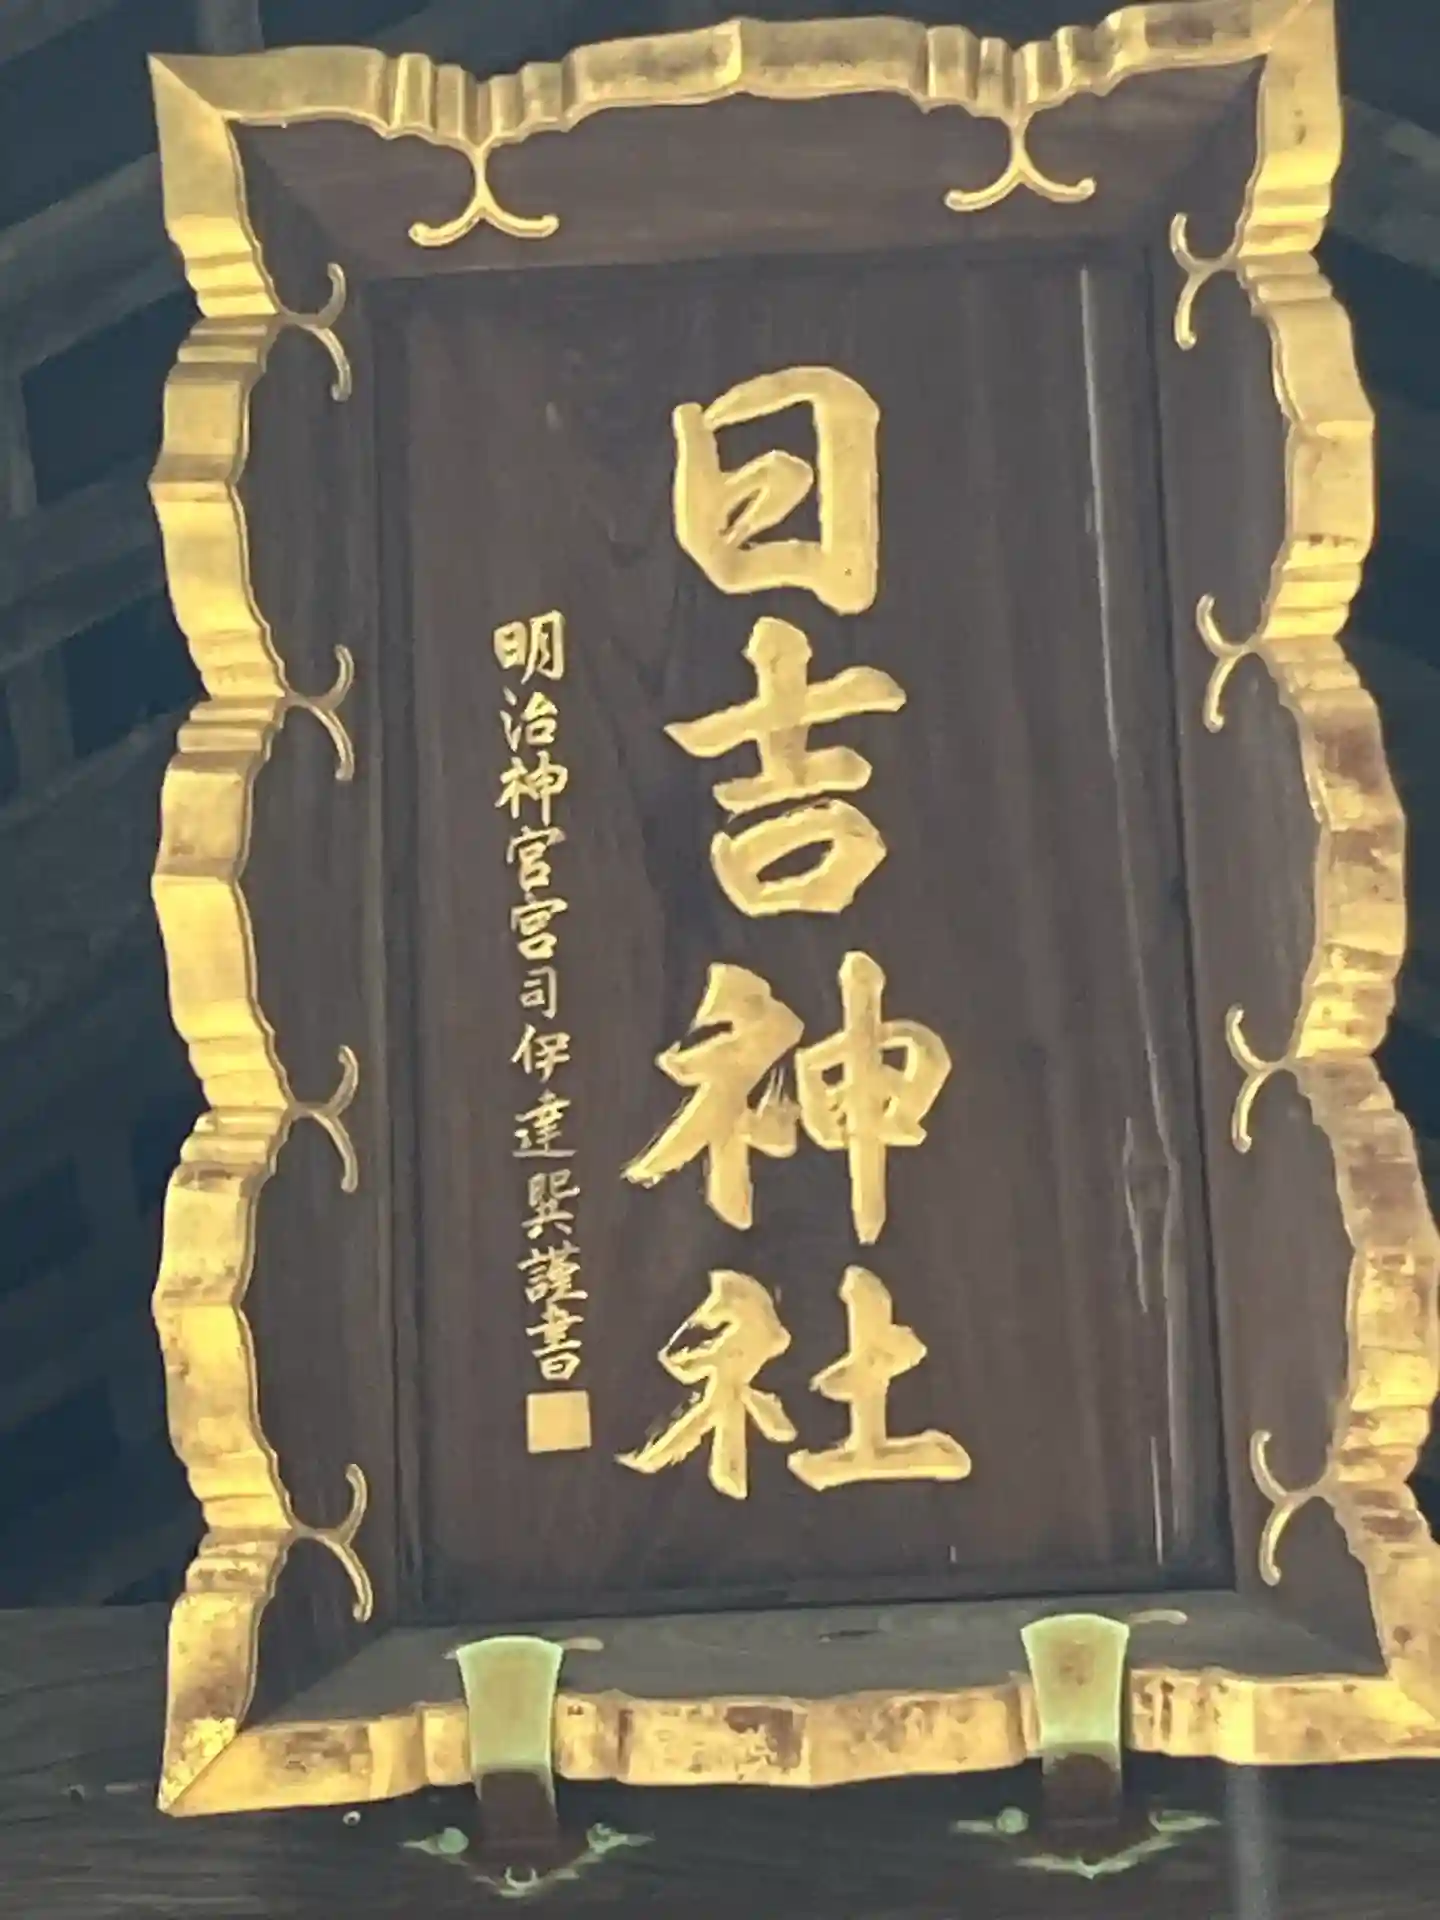 日吉神社
明治神宮宮司伊達巽謹書